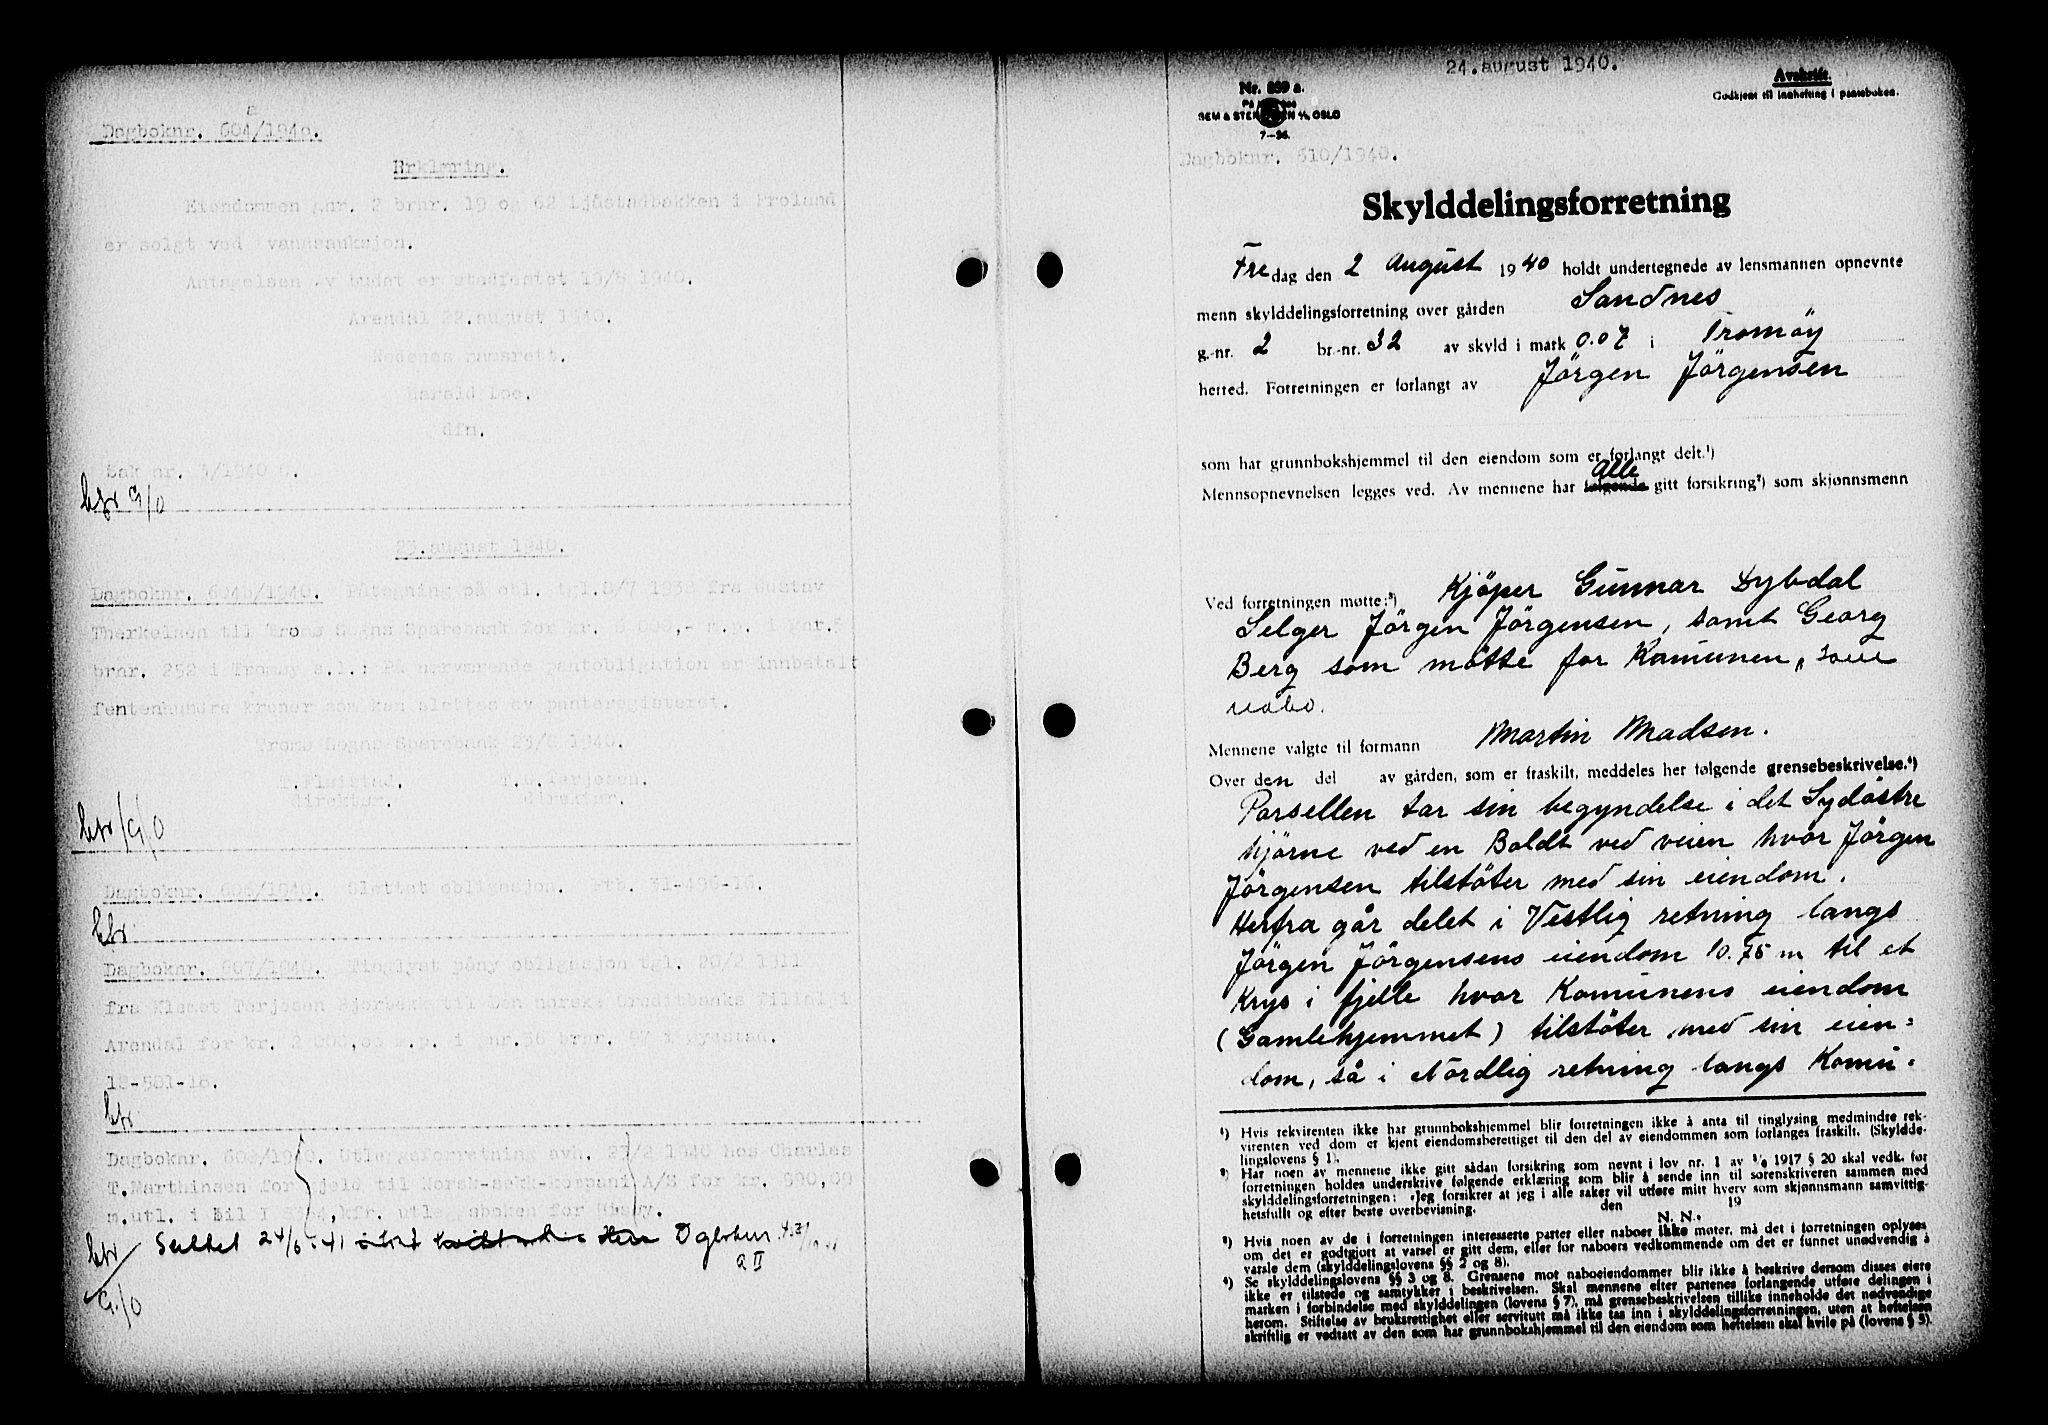 Dagboknr. 604/1940.
Erklæring.
Eiendommen gnr. 2 brnr. 19 og 62 Ljåstadbakken i Froland
er solgt ved tvangsauksjon.
Antagelsen av budet er stadfestet 19/8 1940.
Arendal 22.august 1940.
Nedenes namsrett.
Harald Loe.
dfm.
Sak nr. 3/1940 C.
23.august 1940.
Dagboknr. 604b/1940. Påtegning på obl. tgl.8/7 1938 fra Gustav
Therkelsen til Tromø Sogns Sparebank for kr. 6 000,- m.p. i gnr.
brnr. 252 i Tromøy s.l.: På nærværende pantobligation er innbetalt
femtenhundre kroner som kan slettes av panteregisteret.
Tromø Sogns Sparebank 23/8 1940.
T. T.C. Terjesen.
direktør. direktør.
Dagboknr. 606/1940. Slettet obligasjon. Ptb. 31-496-16.
Dagboknr. 607/1940. Tinglyst påny obligasjon tgl. 20/2 1911
fra Klemet Terjesen Bjorbekk til Den norske Creditbanks filial i
Arendal for kr. 2 000,00 m.p. i gnr.36 brnr. 97 i Øyestad.
18-501-18.
Dagboknr. 609/1940. Utleggsforretning avh. 23/2 1940 hos Charles
T. Marthinsen for gjeld til Norsk-sekk-kompani A/S for kr. 990,09
m.utl. i bil I kfr. utleggsboken for Hisøy.
24/6-41
24.august 1940.
Avskrift.
Godkjent til innhefting i panteboken.
Nr. 859 a.
SEM & STENERSEN A/S OSLO
7-36.
Dagboknr. 610/1940.
Skylddelingsforretning
Fredag den 2 August 1940 holdt undertegnede av lensmannen opnevnte
menn skylddelingsforretning over gården Sandnes
g.-nr. 2 br.-nr. 32 av skyld i mark 0.07 i Tromøy
herred. Forretningen er forlangt av Jörgen Jörgensen
som har grunnbokshjemmel til den eiendom som er forlangt delt.¹)
Mennsopnevnelsen legges ved. Av mennene har følgende Alle gitt forsikring²) som skjønnsmenn
Ved forretningen møtte:³) Kjöper Gunnar Dybdal
Selger Jörgen Jörgensen, samt Georg
Berg som møtte for Komunen, som
nabo.
Mennene valgte til formann Martin Madsen.
Over den del av gården, som er fraskilt, meddeles her følgende grensebeskrivelse.⁴)
Parsellen tar sin begyndelse i det Sydöstre
hjörne ved en Boldt ved veien hvor Jörgen
Jörgensen tilstöter med sin eiendom.
Herfra går delet i Vestlig retning langs
Jörgen Jörgensens eiendom 10.75 m til et
Krys i fjelle hvor Komunens eiendom
(Gamlehjemmet) tilstöter med sin eien=
dom, så i Nordlig retning langs Komu=
¹) Hvis rekvirenten ikke har grunnbokshjemmel blir forretningen ikke å anta til tinglysing medmindre rek-
virenten ved dom er kjent eiendomsberettiget til den del av eiendommen som forlanges fraskilt. (Skyldde-
lingslovens § 1).
²) Har noen av mennene ikke gitt sådan forsikring som nevnt i lov nr. 1 av 1/6 1917 § 20 skal vedk. før
forretningen holdes underskrive følgende erklæring som blir å sende inn til sorenskriveren sammen med
skylddelingsforretningen: «Jeg forsikrer at jeg i alle saker vil utføre mitt hverv som skjønnsmann samvittig-
hetsfullt og efter beste overbevisning. den 19
N. N.»
³) Hvis noen av de i forretningen interesserte parter eller naboer ikke møter, må det i forretningen oplyses
om det er godtgjort at varsel er gitt dem, eller for naboers vedkommende om det er funnet unødvendig å
varsle dem (skylddelingslovens §§ 2 og 8).
⁴) Se skylddelingslovens §§ 3 og 8. Grensene mot naboeiendommer blir ikke å beskrive dersom disses eiere
ikke er tilstede og samtykker i beskrivelsen. Skal mennene efter partenes forlangende utføre delingen i
marken i forbindelse med skylddelingen (lovens § 7), må grensebeskrivelsen tillike inneholde det nødvendige
herom. Stiftelse av bruksrettighet eller servitutt må ikke tas inn i skylddelingsforretningen, uten at heftelsen
skriftlig er vedtatt av den som har grunnbokshjemmel til den eiendom som heftelsen skal hvile på (lovens § 5).